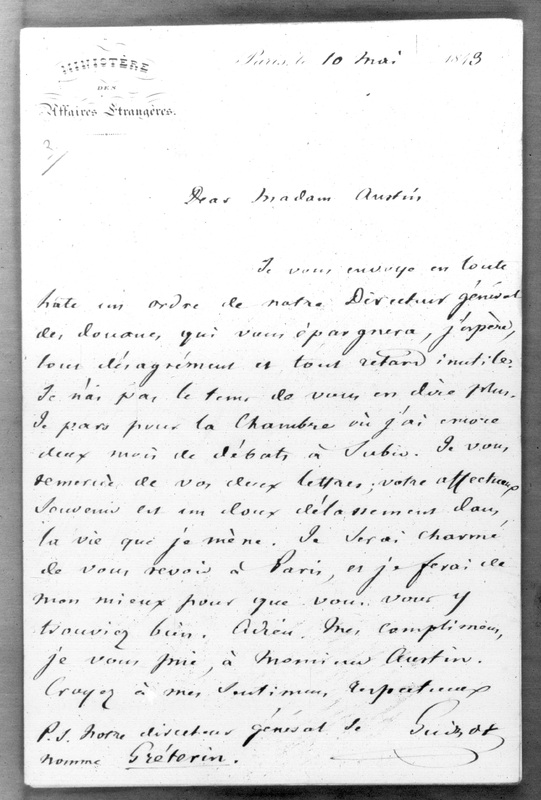 MINISTÈRE
DES
Affaires Étrangères.
Paris, le 10 mai 1843
3/
Dear Madam Austin
Je vous envoye en toute
hâte un ordre de notre Directeur général
des douanes, qui vous épargnera, j'espère,
tout désagrément et tout retard inutile.
Je n'ai pas le tems de vous en dire plus.
Je pars pour la Chambre où j'ai encore
deux mois de débats à subir. Je vous
remercie de vos deux lettres ; votre affectueux
souvenir est un doux délassement dans
la vie que je mène. Je serai charmé
de vous revoir à Paris, et je ferai de
mon mieux pour que vous vous y
trouviez bien. Adieu. Mes complimens,
je vous prie, à Monsieur Austin.
Croyez à mes sentimens respectueux
Guizot
P.S. Notre directeur général se
nomme Gréterin.